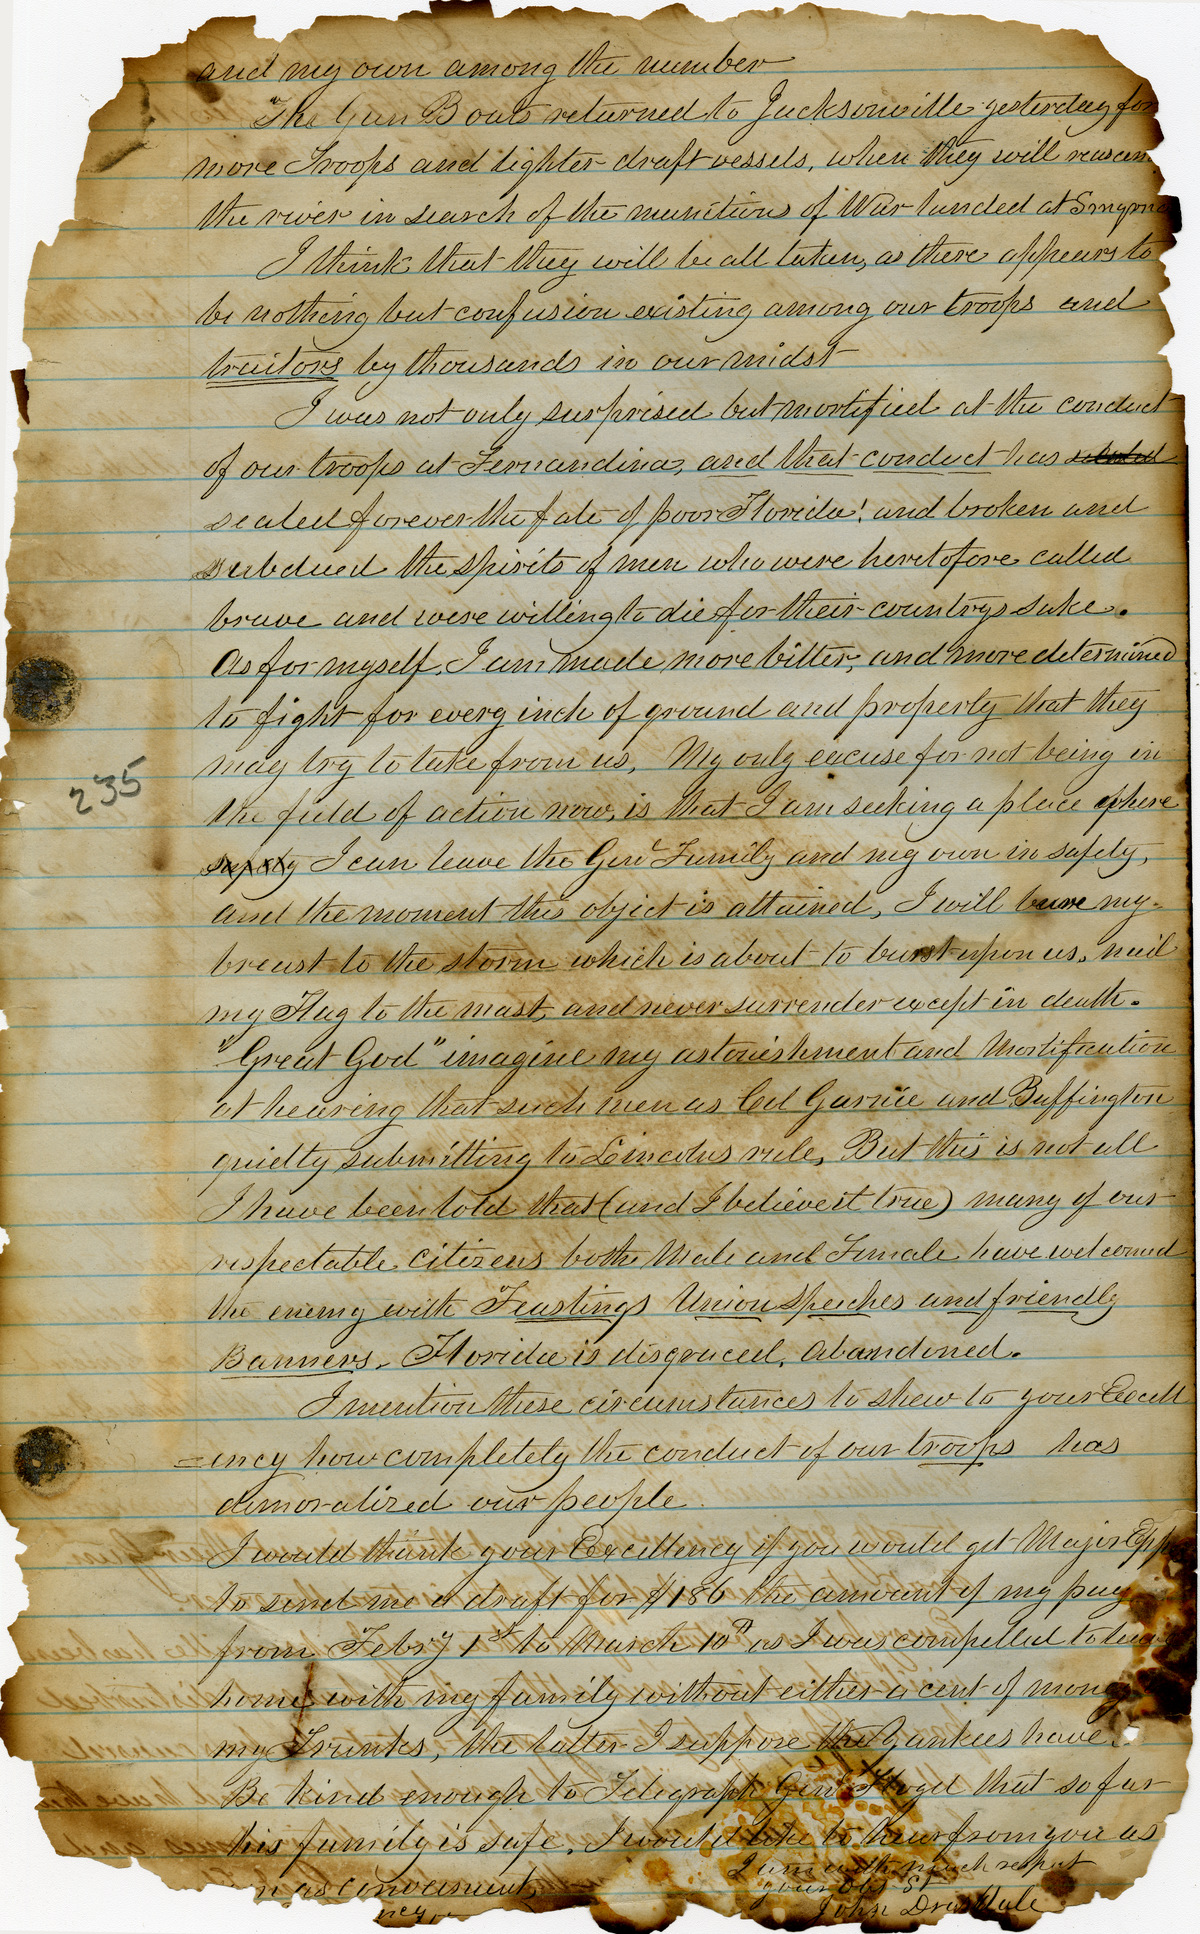 and my own among the number
The Gun Boats returned to Jacksonville yesterday for
more Troops and lighter draft vessels, when they will reascen
the river in search of the munitions of War landed at Smyrna
I think that they will be all taken, as there appears to
be nothing but confusion existing among our troops and
traitors by thousands in our midst
I was not only surprised but mortified at the conduct
of our troops at Fernandina, and that conduct has
sealed forever the fate of poor Florida! and broken and
subdued the spirits of men who were heretofore called
brave and were willing to die for their countrys sake.
As for myself, I am made more bitter, and more determined
to fight for every inch of ground and property that they
may try to take from us, My only excuse for not being in
the field of action now, is that I am seeking a place where
I can leave the Genl Family and my own in safety,
and the moment this object is attained, I will bare my
breast to the storm which is about to burst upon us, nail
my Flag to the mast, and never surrender except in death.
"Great God" imagine my astonishment and Mortification
at hearing that such men as Col Garnie and Buffington
quietly submitting to Lincolns rule, But this is not all
I have been told that (and I believe it true) many of our
respectable citizens both Male and Female have welcomed
the enemy with Feastings Union Speeches and friendly
Banners. Florida is disgraced, abandoned.
I mention these circumstances to shew to your Excell
=ency how completely the conduct of our troops has
demoralized our people.
I would thank your Excellency if you would get Major
to send me a draft for $186 the amount of my pay
from Febry 1st to March 10th as I was compelled to leave
home with my family without either a cent of money
my Trunks, the latter I suppose the Yankees have.
Be kind enough to Telegraph Genl Floyd that so far
his family is safe. I would like to hear from you as
n as convenient
I am with much respect
your Obt St
John Drysdale
235